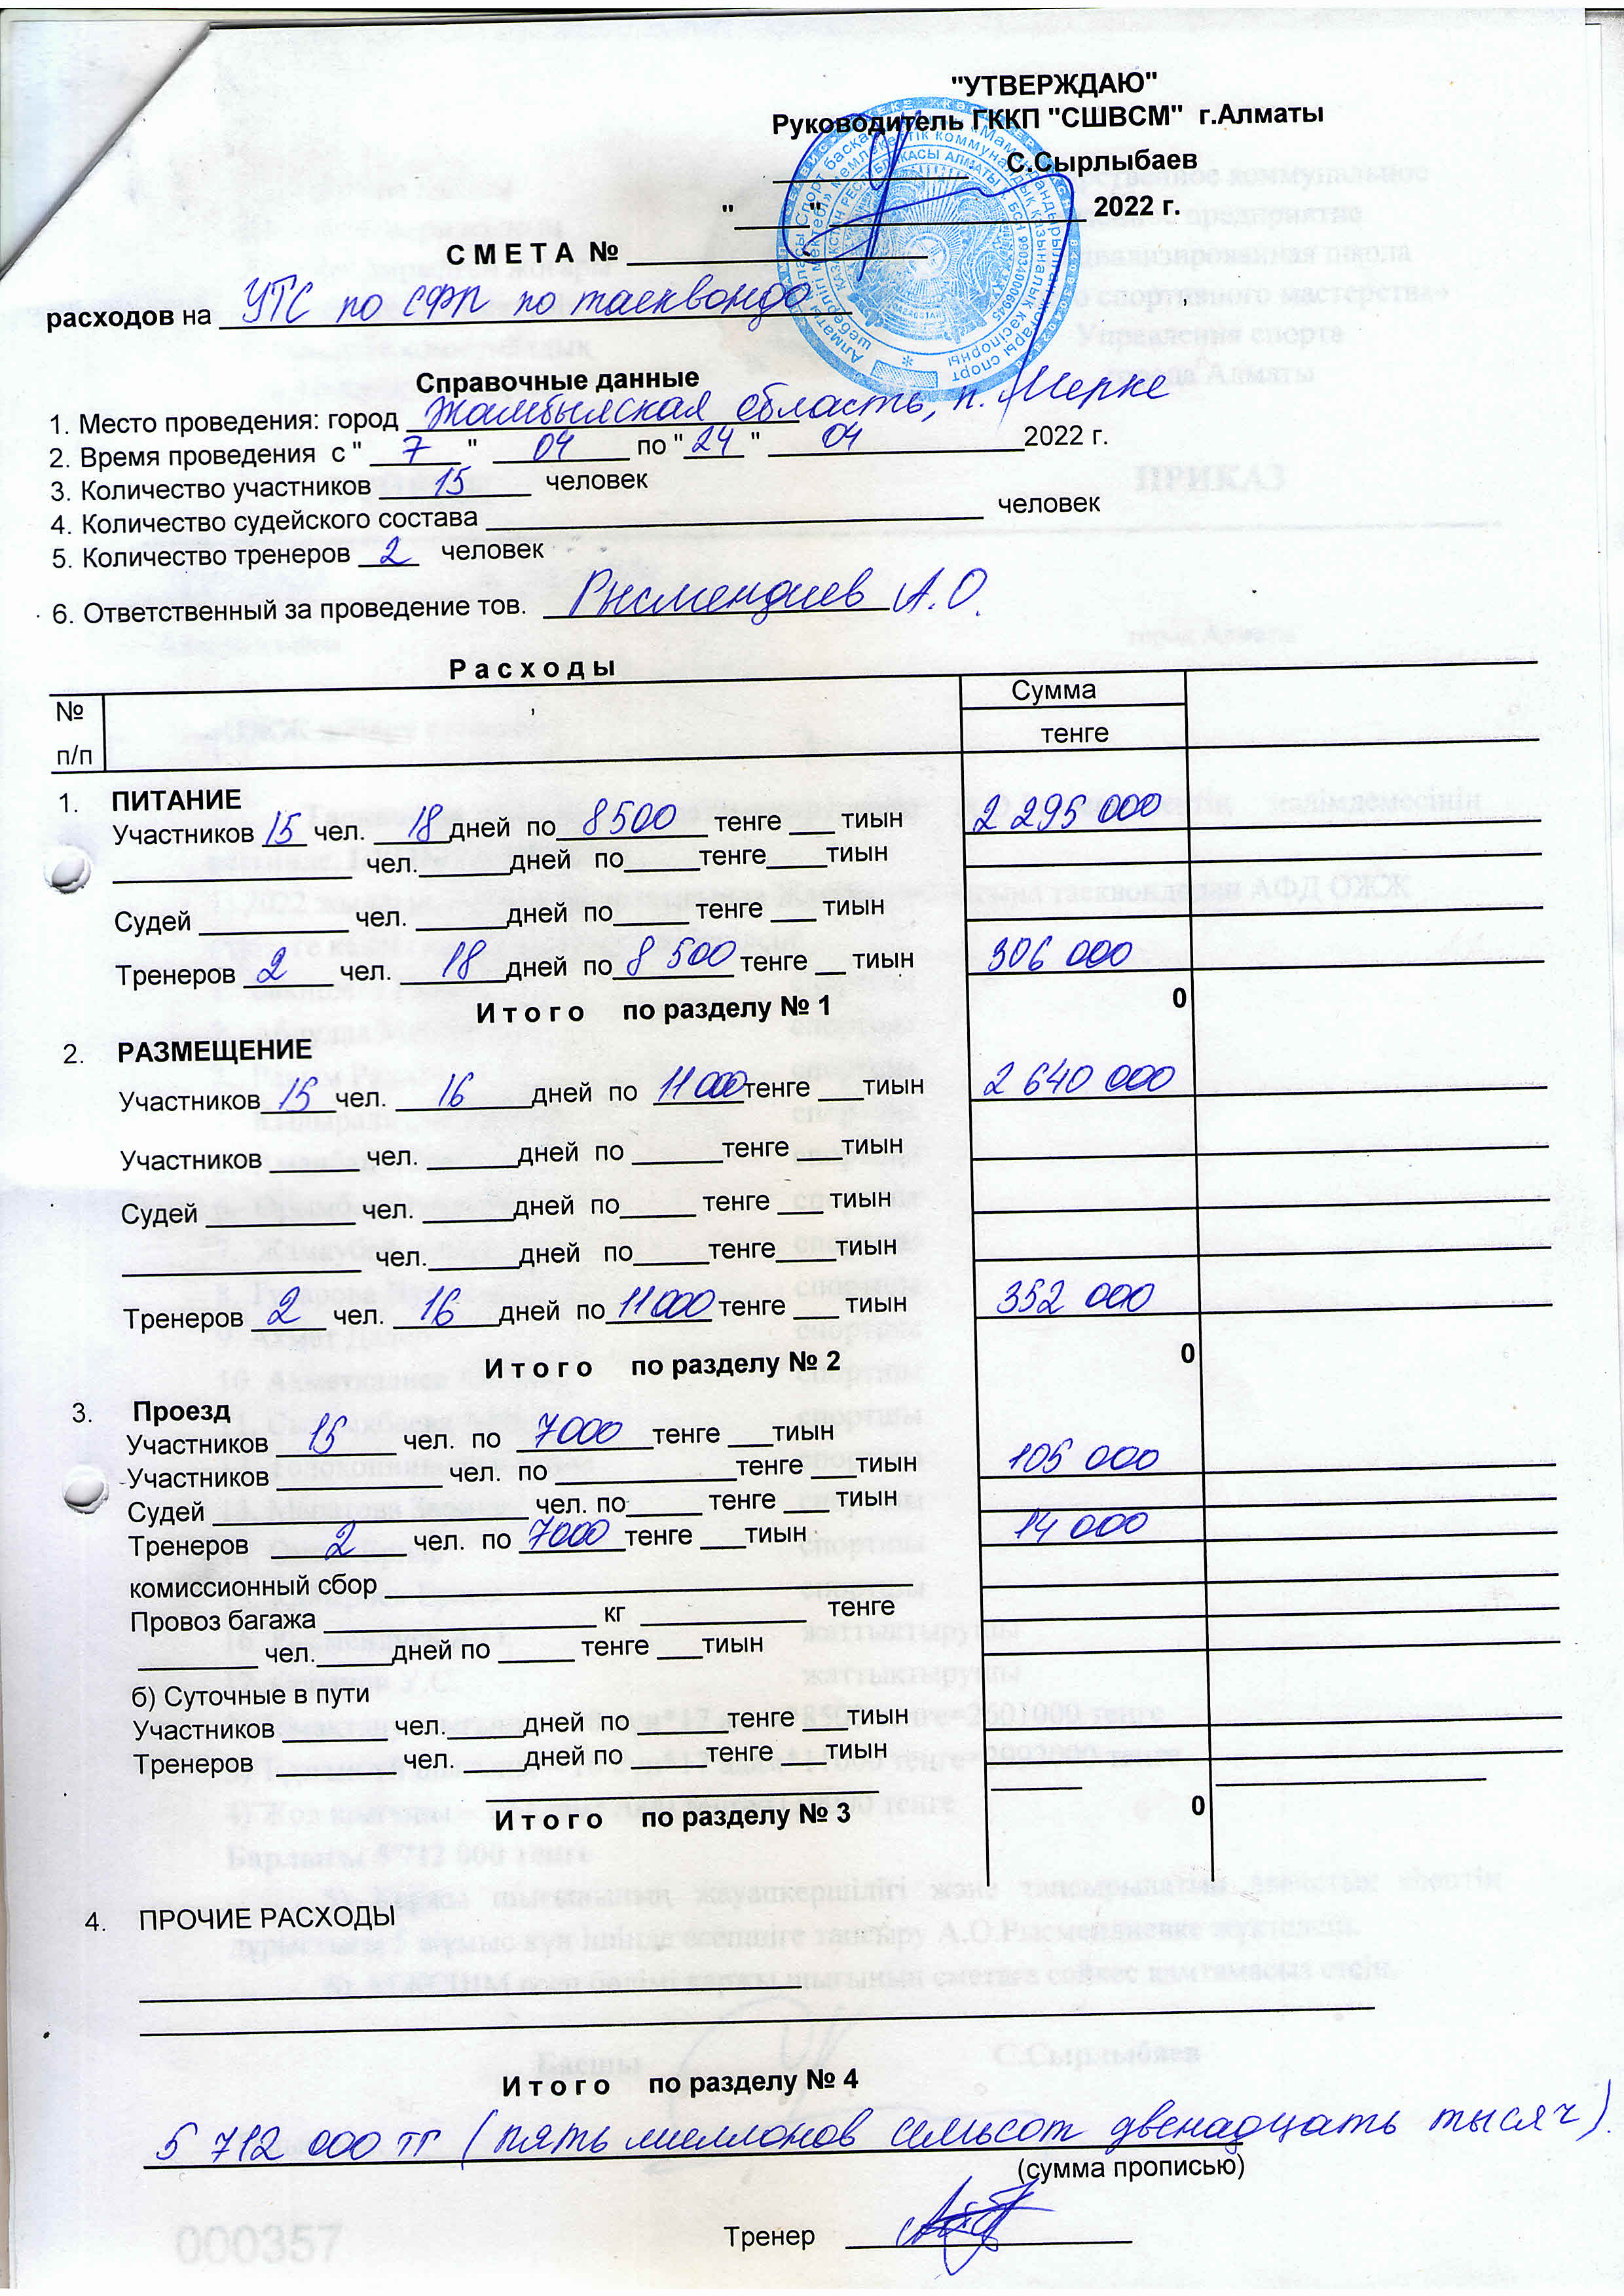 "УТВЕРЖДАЮ"
Руководитель ГККП "СШВСМ" г.Алматы
____________ С.Сырлыбаев
"_____" ________________ 2022 г.
С М Е Т А № ____________________
расходов на УТС по СФП по таеквондо
Справочные данные
1. Место проведения: город Жамбылская область, п. Мерке
2. Время проведения с " 7 " 04 по " 24 " 04 2022 г.
3. Количество участников 15 человек
4. Количество судейского состава ____________ человек
5. Количество тренеров 2 человек
6. Ответственный за проведение тов. Рысмендиев А.О.
Р а с х о д ы
№ п/п Сумма
тенге
1. ПИТАНИЕ
Участников 15 чел. 18 дней по 8500 тенге ___ тиын 2 295 000
________________ чел.______дней по_____тенге____тиын
Судей __________ чел. ______дней по_____ тенге ___ тиын
Тренеров 2 чел. 18 дней по 8 500 тенге __ тиын 306 000
И т о г о по разделу № 1 0
2. РАЗМЕЩЕНИЕ
Участников 15 чел. 16 дней по 11 000 тенге ___тиын 2 640 000
Участников ______ чел. ______дней по ______тенге ___тиын
Судей __________ чел. ______дней по_____ тенге ___ тиын
________________ чел.______дней по_____тенге____тиын
Тренеров 2 чел. 16 дней по 11000 тенге ___ тиын 352 000
И т о г о по разделу № 2 0
3. Проезд
Участников 15 чел. по 7000 тенге ___тиын 105 000
Участников ___________ чел. по ____________тенге ___тиын
Судей _____________________ чел. по_____ тенге ___ тиын
Тренеров 2 чел. по 7000 тенге ___тиын 14 000
комиссионный сбор ___________________________________
Провоз багажа __________________ кг ___________ тенге
________ чел._____дней по _____ тенге ___тиын
б) Суточные в пути
Участников _______ чел._____дней по ______тенге ___тиын
Тренеров ________ чел. ____дней по _____тенге ___тиын
И т о г о по разделу № 3 0
4. ПРОЧИЕ РАСХОДЫ
И т о г о по разделу № 4
5 712 000 тг (пять миллионов семьсот двенадцать тысяч).
(сумма прописью)
Тренер ___________________
000357